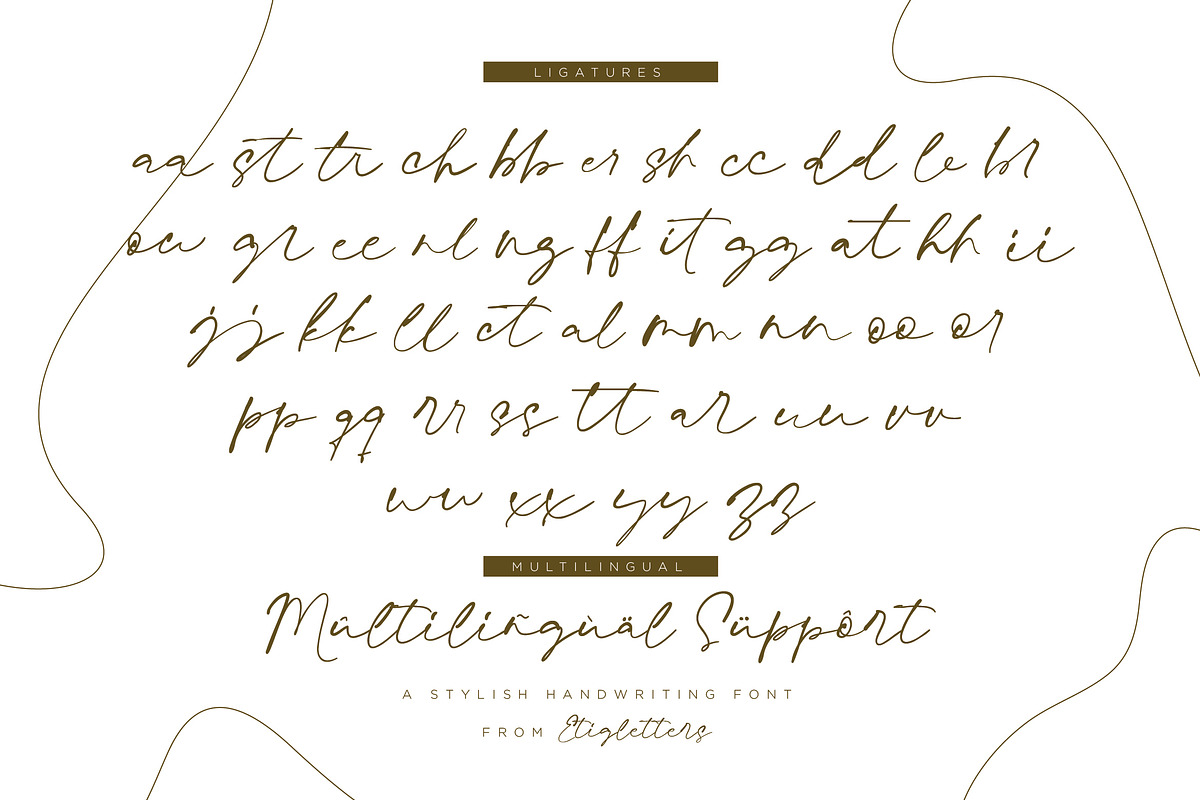 LIGATURES
aa st tr ch bb er sh cc dd le br
ou gr ee nl ng ff it gg at hh ii
jj kk ll ct al mm nn oo or
pp qq rr ss tt ar uu vv
ww xx yy zz
MULTILINGUAL
Mûltiliñgùäl Süppôrt
A STYLISH HANDWRITING FONT
FROM Etigletters